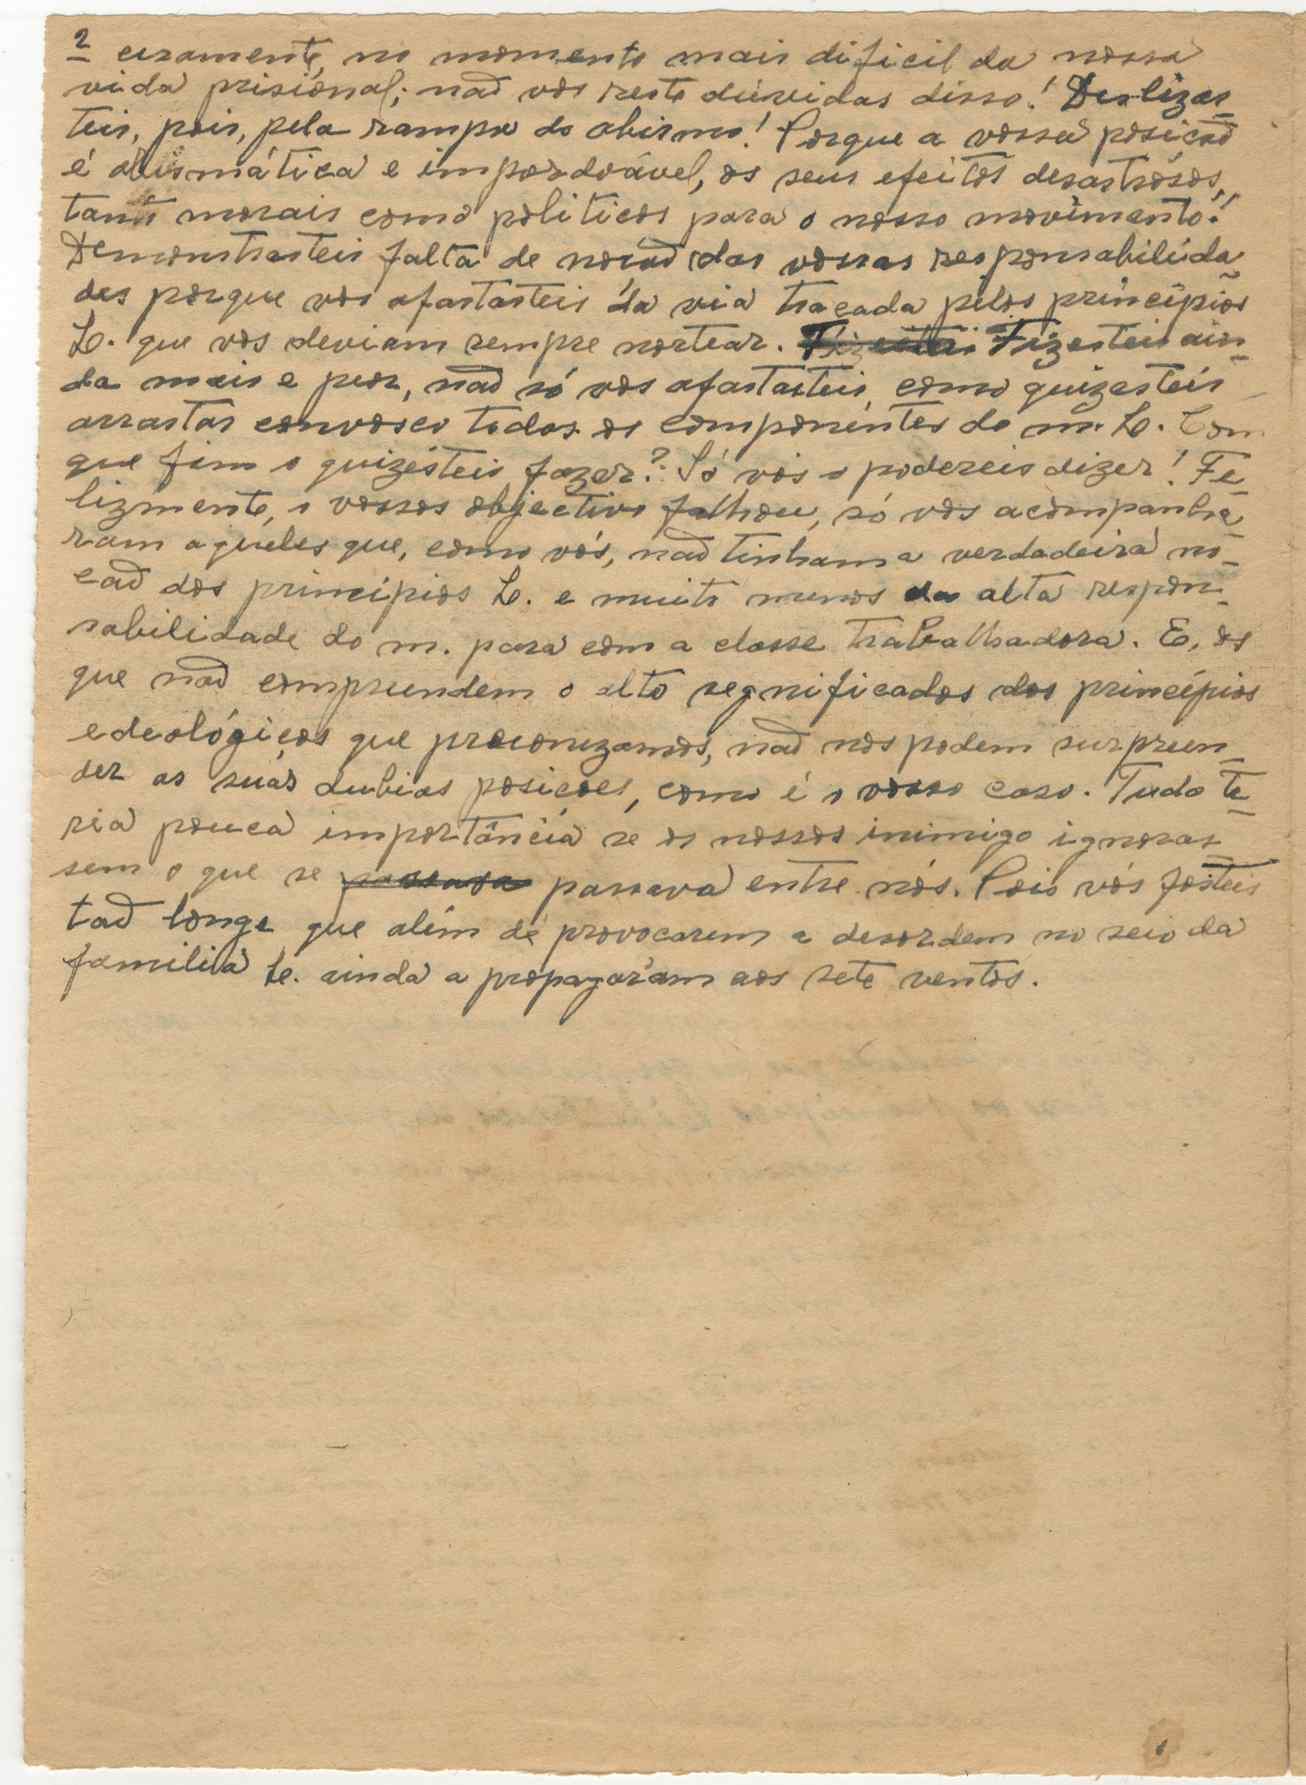 2
ceramente, no momento mais dificil da nossa
vida prisional; não vos reste dúvidas disso! Deslizas-
teis, pois, pela rampa do abismo! Porque a vossa posição
é abismática e imperdoável, os seus efeitos desastrósos,
tanto morais como politicos para o nosso movimento!
Demonstrasteis falta de noção das vossas responsabilida
des porque vos afastásteis da via traçada pelos princípios
L. que vos deviam sempre nortear. Fizesteis ain-
da mais e peor, não só vos afastásteis, como quizesteis
arrastar convosco todos os componentes do m. L. Com
que fim o quizésteis fazer? Só vós o podereis dizer! Fe-
lizmente, o vossos objectivo falhou, só vos acompanha
ram aqueles que, como vós, não tinham a verdadeira no-
ção dos princípios L. e muito menos da alta respon-
sabilidade do m. para com a classe trabalhadora. E, os
que não compreendem o alto segnificados dos princípios
edeológicos que preconizamos, não nos podem surpreen-
der as suas dubias posições, como é o vosso caso. Tudo te-
ria pouca importância se os nossos inimigo ignoras-
sem o que se passava passava entre nós. Pois vós fosteis
tão longe que além de provocarem a desordem no seio da
familia L. ainda a propagáram aos sete ventos.